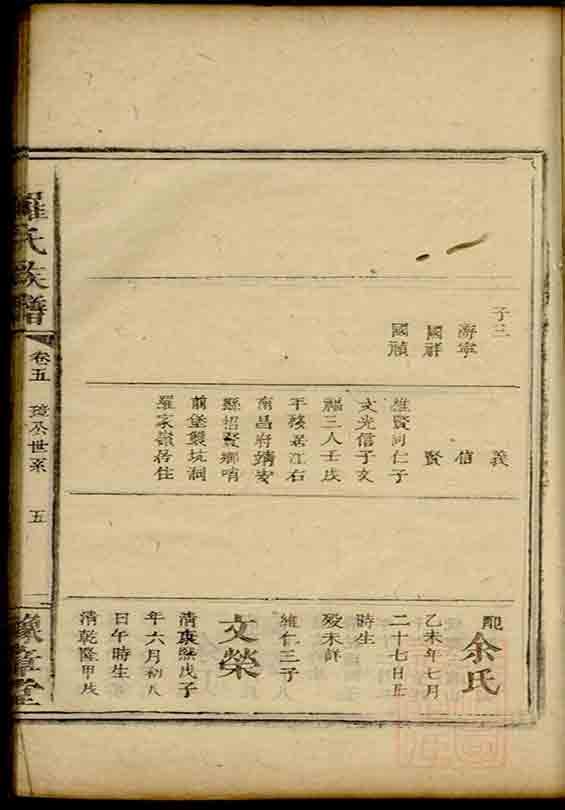 子三
海寧
國祥
國禎
義
信
賢
維賢向仁子
文光信子文
福三人壬戌
年移居江右
南昌府靖安
縣招賢鄉哨
前堡製坑洞
羅家嶺居住
配余氏
乙未年七月
二十七日丑
時生
歿未詳
維仁三子
文榮
清康熙戊子
年六月初八
日午時生
清乾隆甲戌
羅氏族譜
卷五
世系
五
豫章堂